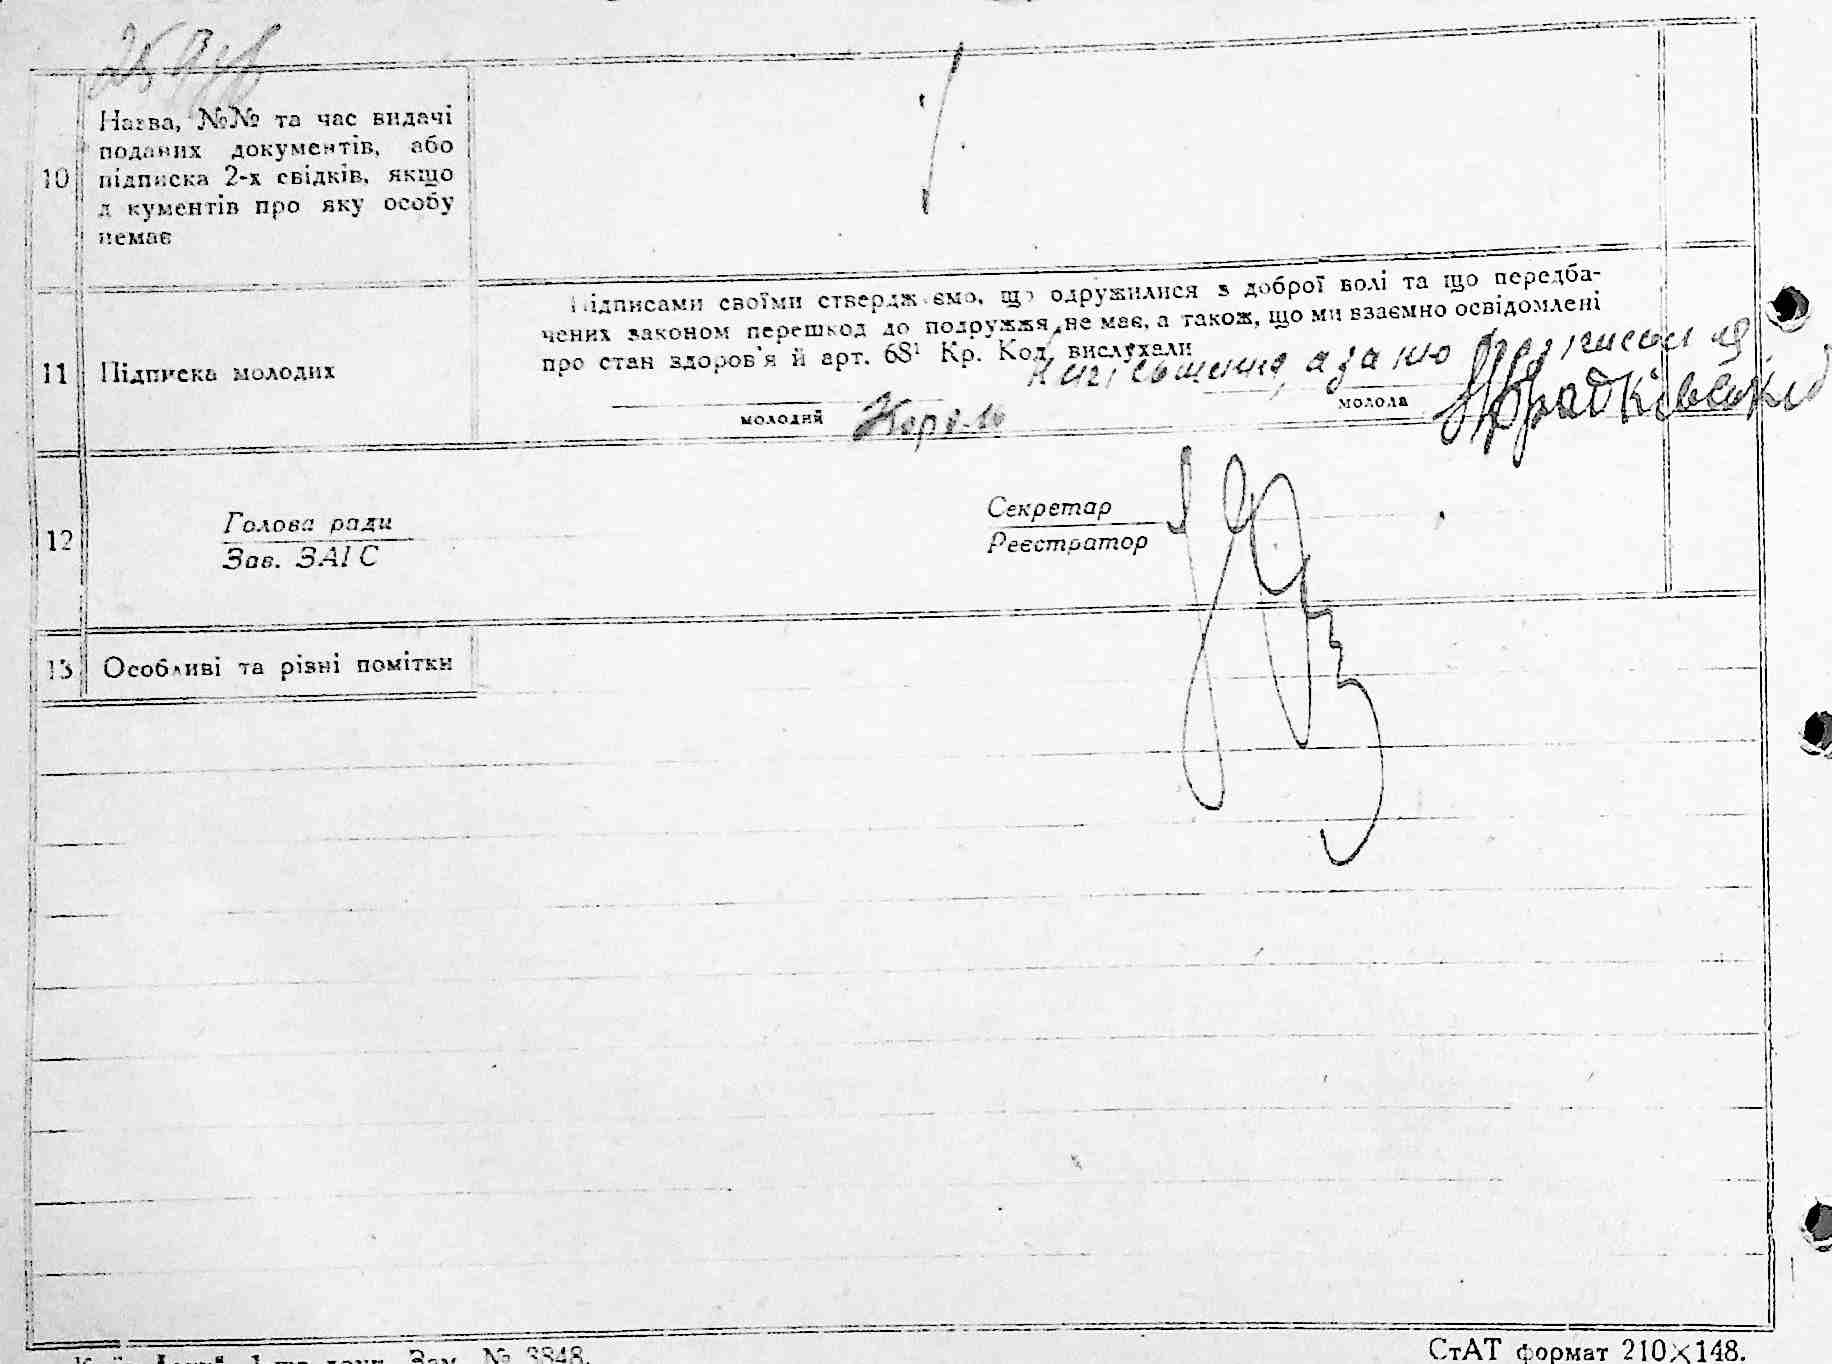 10
Назва, №№ та час видачі
поданих документів, або
підписка 2-х свідків, якщо
д кументів про яку особу
немає
11
Підписка молодих
Підписами своїми стверджуємо, що одружилися з доброї волі та що передба-
чених законом перешкод до подружжя не має, а також, що ми взаємно освідомлені
про стан здоров'я й арт. 68¹ Кр. Код. вислухали
неписьменна, а за нею
молодий
Король
молода
12
Голова ради
Зав. ЗАГС
Секретар
Реєстратор
13
Особливі та різні помітки
Зам. № 3848.
СтАТ формат 210×148.